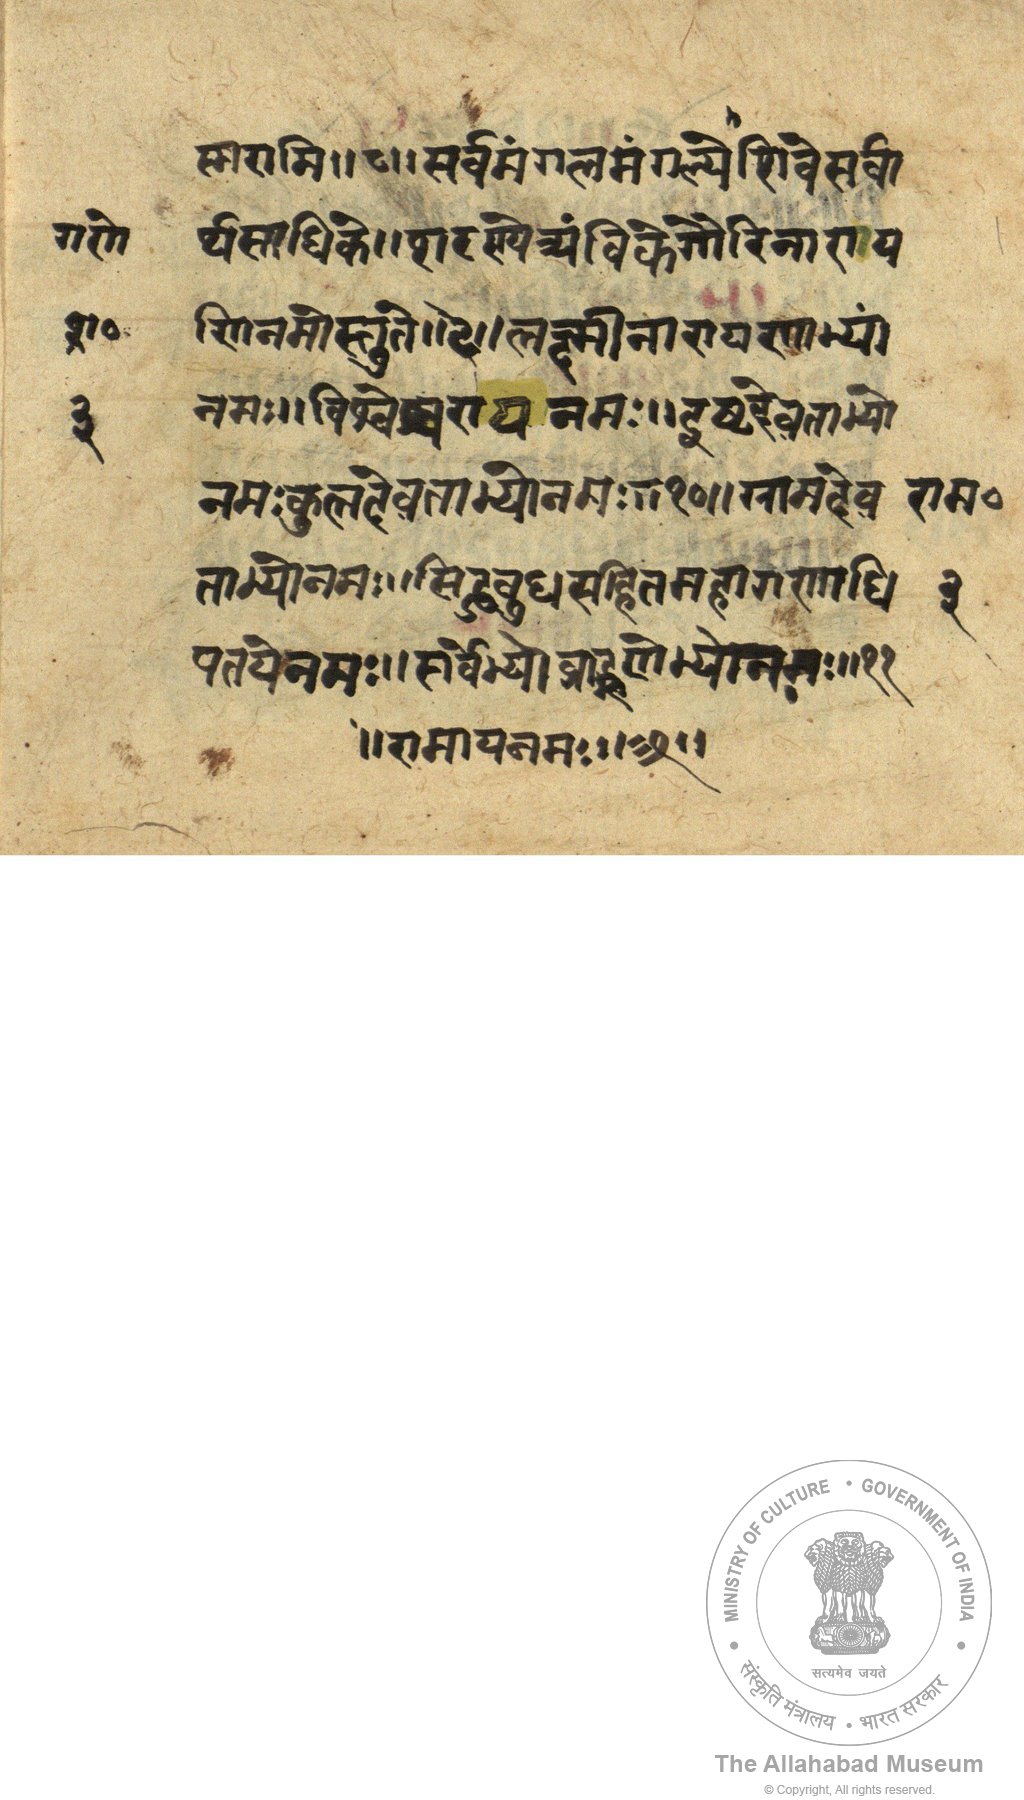 स्मरामि॥८॥सर्वमंगलमंगल्यै शिवे सर्वा
गणे र्थसाधिके॥शरण्ये त्र्यंविके गौरि नाराय
शा० णि नमोस्तुते॥९॥लक्ष्मीनारायणाभ्यां
३ नमः॥विश्वेश्वराय नमः॥इष्टदेवताभ्यो
नमः कुलदेवताभ्यो नमः॥१०॥ग्रामदेव राम०
ताभ्यो नमः॥सिद्धबुधसहितमहागणाधि ३
पतये नमः॥सर्वेभ्यो ब्राह्मणेभ्यो नमः॥११
॥रामाय नमः॥श्री॥
MINISTRY OF CULTURE • GOVERNMENT OF INDIA
सत्यमेव जयते
संस्कृति मंत्रालय • भारत सरकार
The Allahabad Museum
© Copyright, All rights reserved.